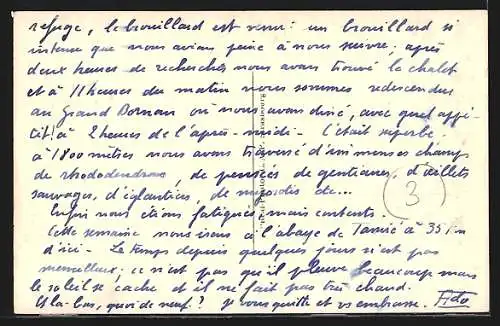 refuge, le brouillard est venu : un brouillard si
intense que nous avions peine à nous suivre ; après
deux heures de recherches nous avons trouvé le chalet
et à 11 heures du matin nous sommes redescendus
au Grand Bornan où nous avons diné, avec quel appé-
tit ! à 2 heures de l'après-midi. C'était superbe.
à 1800 mètres nous avons traversé d'immenses champs
de rhododendrons, de pensées de gentianes, d'œillets
sauvages, d'églantines, de myosotis de...
Enfin nous étions fatigués mais contents.
Cette semaine nous irons à l'abaye de Tamié à 35 Km
d'ici - Le temps depuis quelques jours n'est pas
merveilleux ; ce n'est pas qu'il pleuve beaucoup mais
le soleil se cache et il ne fait pas très chaud.
Et là-bas, quoi de neuf ? je vous quitte et vs embrasse. Fido
3